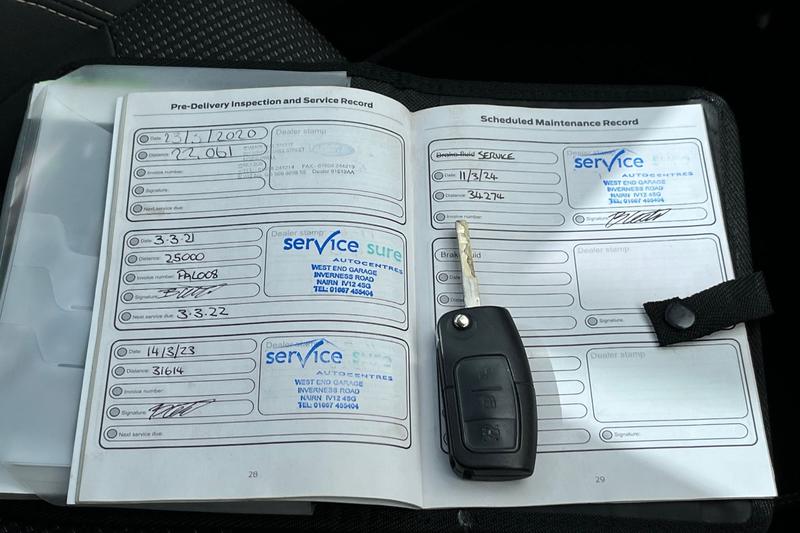 Pre-Delivery Inspection and Service Record
Date: 23/3/2020
Distance: 22,061
Invoice number:
Signature:
Next service due:
Dealer stamp
Date: 3.3.21
Distance: 25000
Invoice number: PAL008
Signature:
Next service due: 3.3.22
Dealer stamp
service sure
AUTOCENTRES
WEST END GARAGE
INVERNESS ROAD
NAIRN IV12 4SG
TEL: 01667 455404
Date: 14/3/23
Distance: 31614
Invoice number:
Signature:
Next service due:
service sure
AUTOCENTRES
WEST END GARAGE
INVERNESS ROAD
NAIRN IV12 4SG
TEL: 01667 455404
28
Scheduled Maintenance Record
Brake fluid SERVICE
Date: 11/3/24
Distance: 34274
Invoice number:
service
AUTOCENTRES
WEST END GARAGE
INVERNESS ROAD
NAIRN IV12 4SG
TEL: 01667 455404
Signature:
Brake fluid
Date
Distance
Dealer stamp
Signature:
Dealer stamp
Signature:
29